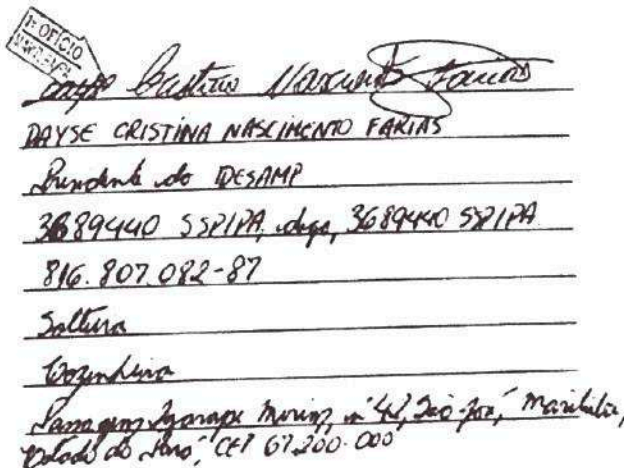 1º OFÍCIO
Dayse Cristina Nascimento Farias
DAYSE CRISTINA NASCIMENTO FARIAS
Presidente do IDESAMP
3689440 SSP/PA, digo, 3689440 SSP/PA
816.807.082-87
Solteira
Cozinheira
Passagem Igarape Mirim, nº 42, São José, Marituba,
Estado do Pará, CEP 67.200-000